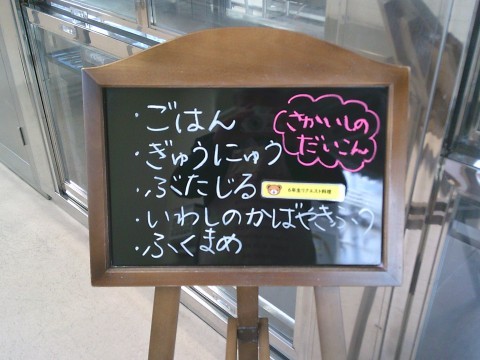 ・ごはん
・ぎゅうにゅう
・ぶたじる
・いわしのかばやきふう
・ふくまめ
さかいしの
だいこん
6年生リクエスト料理